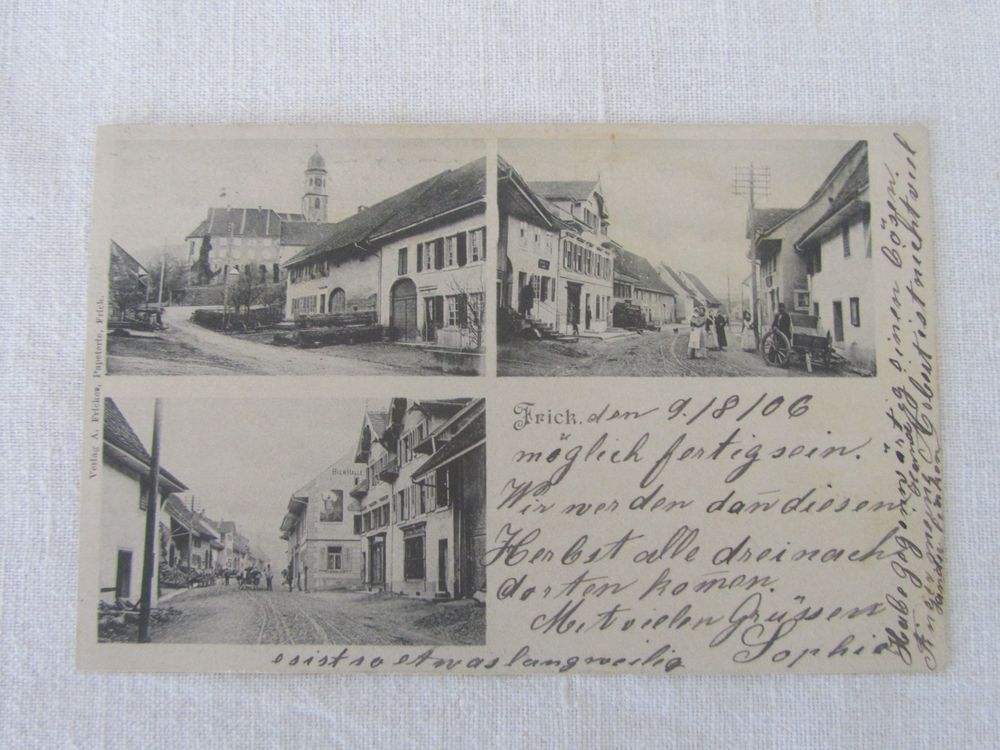 Verlag A. Fricker, Papeterie, Frick.
BIERHALLE
Frick. den 9./8/06
möglich fertig sein.
Wir werden dan̄ diesen
Herbst alle drei nach
dorten kom̄en.
Mit vielen Grüssen
Sophie
Habe gegenwärtig einen bögen.
es ist so etwas langweilig